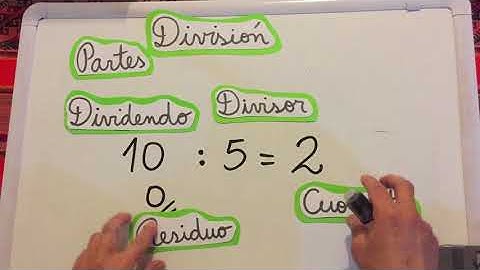 Partes División
Dividendo Divisor
10 : 5 = 2
0
Residuo